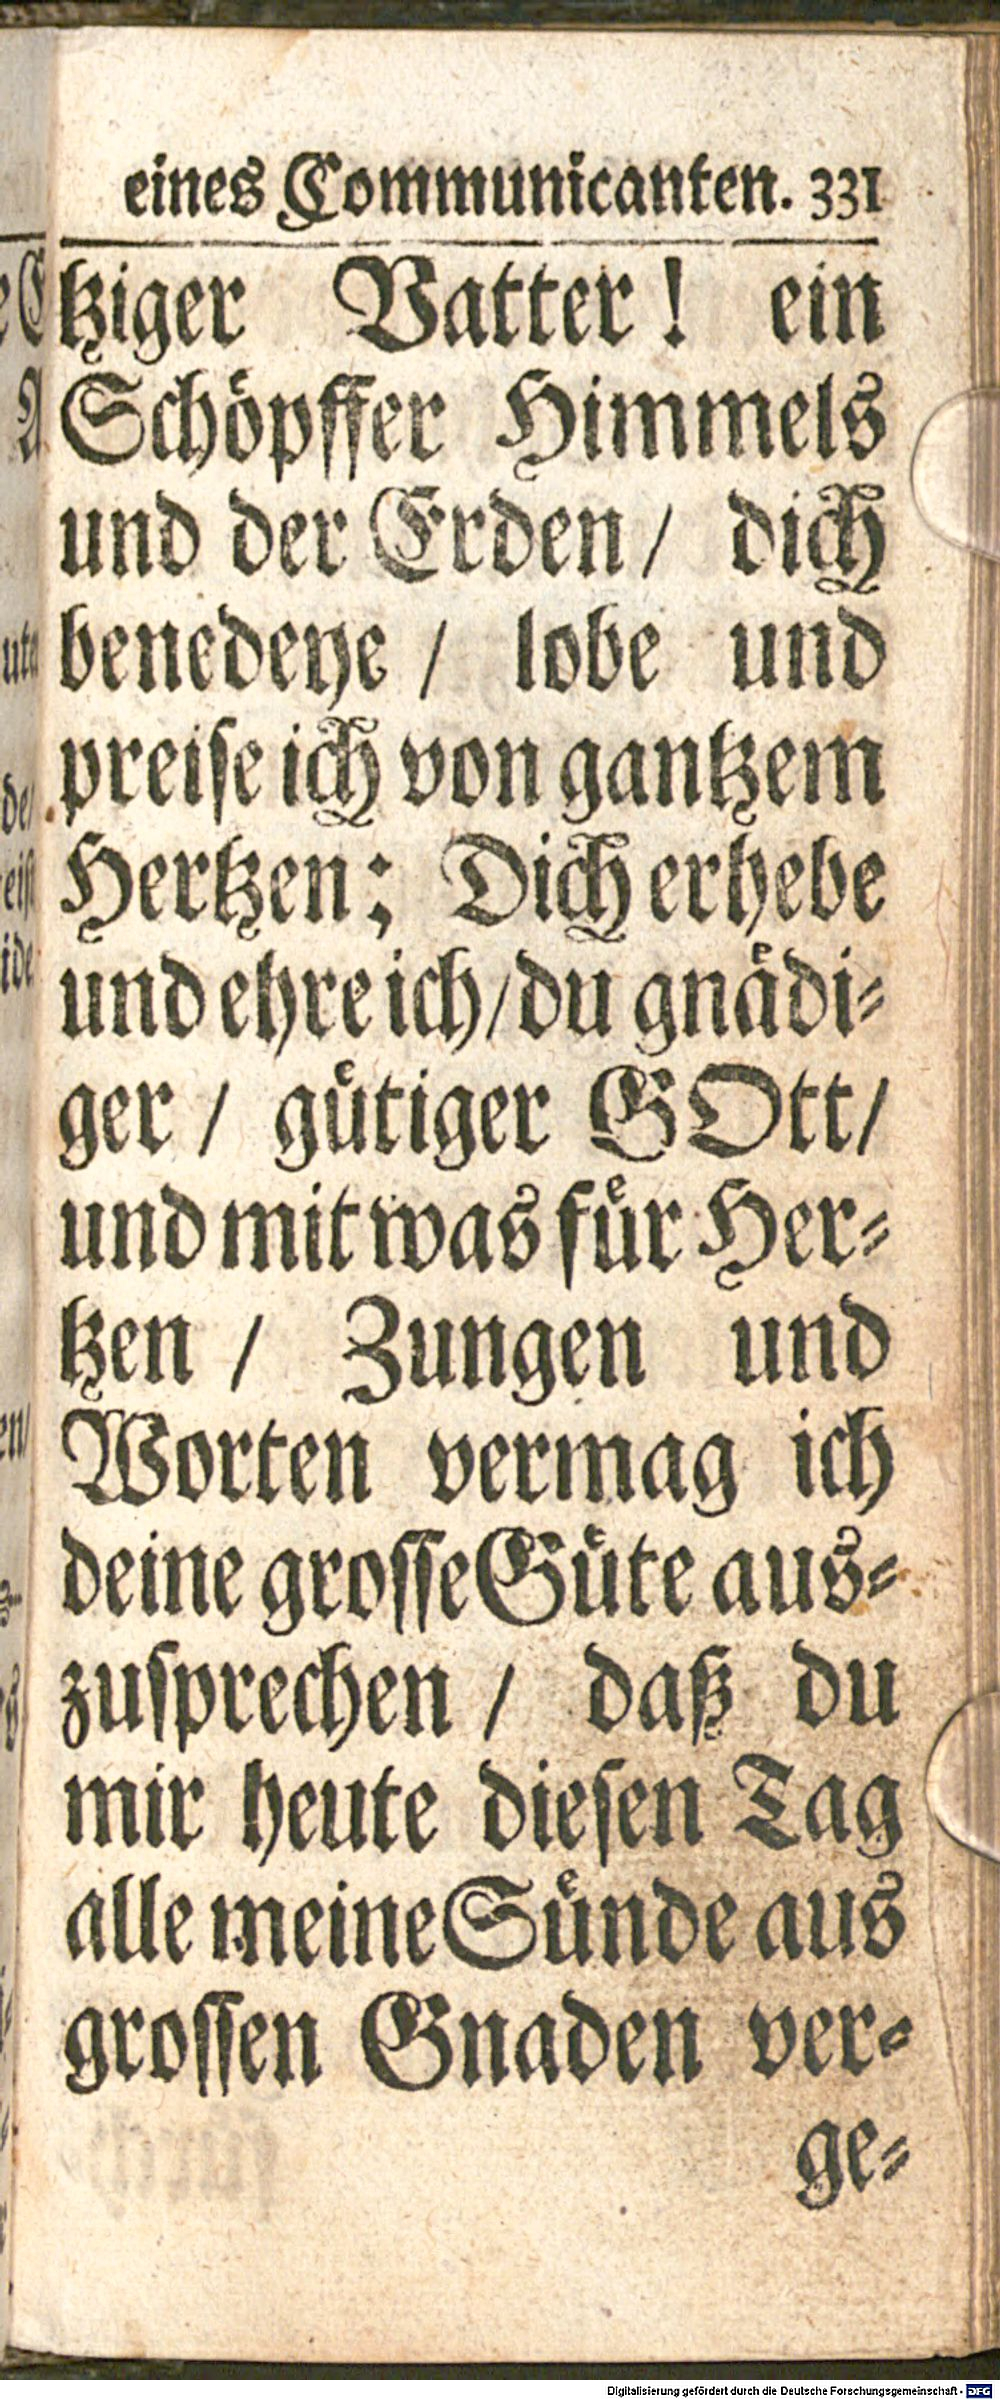 eines Communicanten. 331
tziger Vatter! ein
Schöpffer Himmels
und der Erden/ dich
benedeye/ lobe und
preise ich von gantzem
Hertzen; Dich erhebe
und ehre ich/ du gnädi-
ger/ gütiger GOtt/
und mit was für Her-
tzen/ Zungen und
Worten vermag ich
deine grosse Güte aus-
zusprechen/ daß du
mir heute diesen Tag
alle meine Sünde aus
grossen Gnaden ver-
ge-
Digitalisierung gefördert durch die Deutsche Forschungsgemeinschaft - DFG